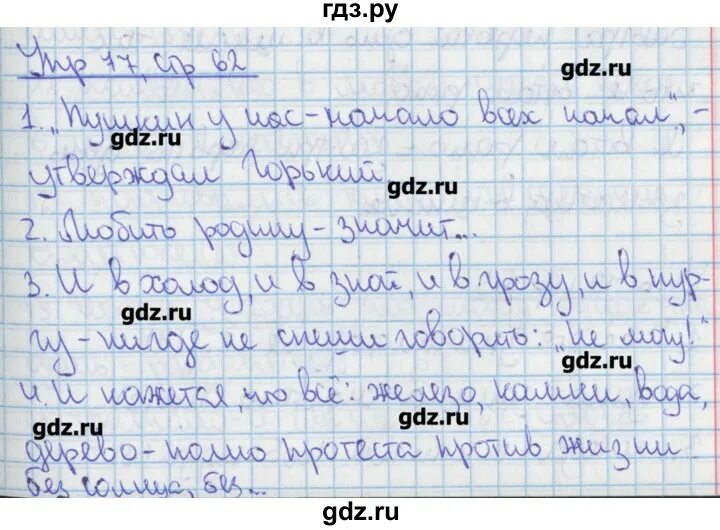 гдз.ру
Упр 17, стр 62
gdz.ru
1. „Пушкин у нас-начало всех начал", -
gdz.ru
утверждал Горький.
gdz.ru
2. Любить родину-значит...
3. И в холод, и в зной, и в грозу, и в пур-
gdz.ru
гу-нигде не спеши говорить: „Не могу!"
gdz.ru
4. И кажется, что всё: железо, камни, вода,
gdz.ru
gdz.ru
дерево-полно протеста против жизни
без солнца, без...
gdz.ru